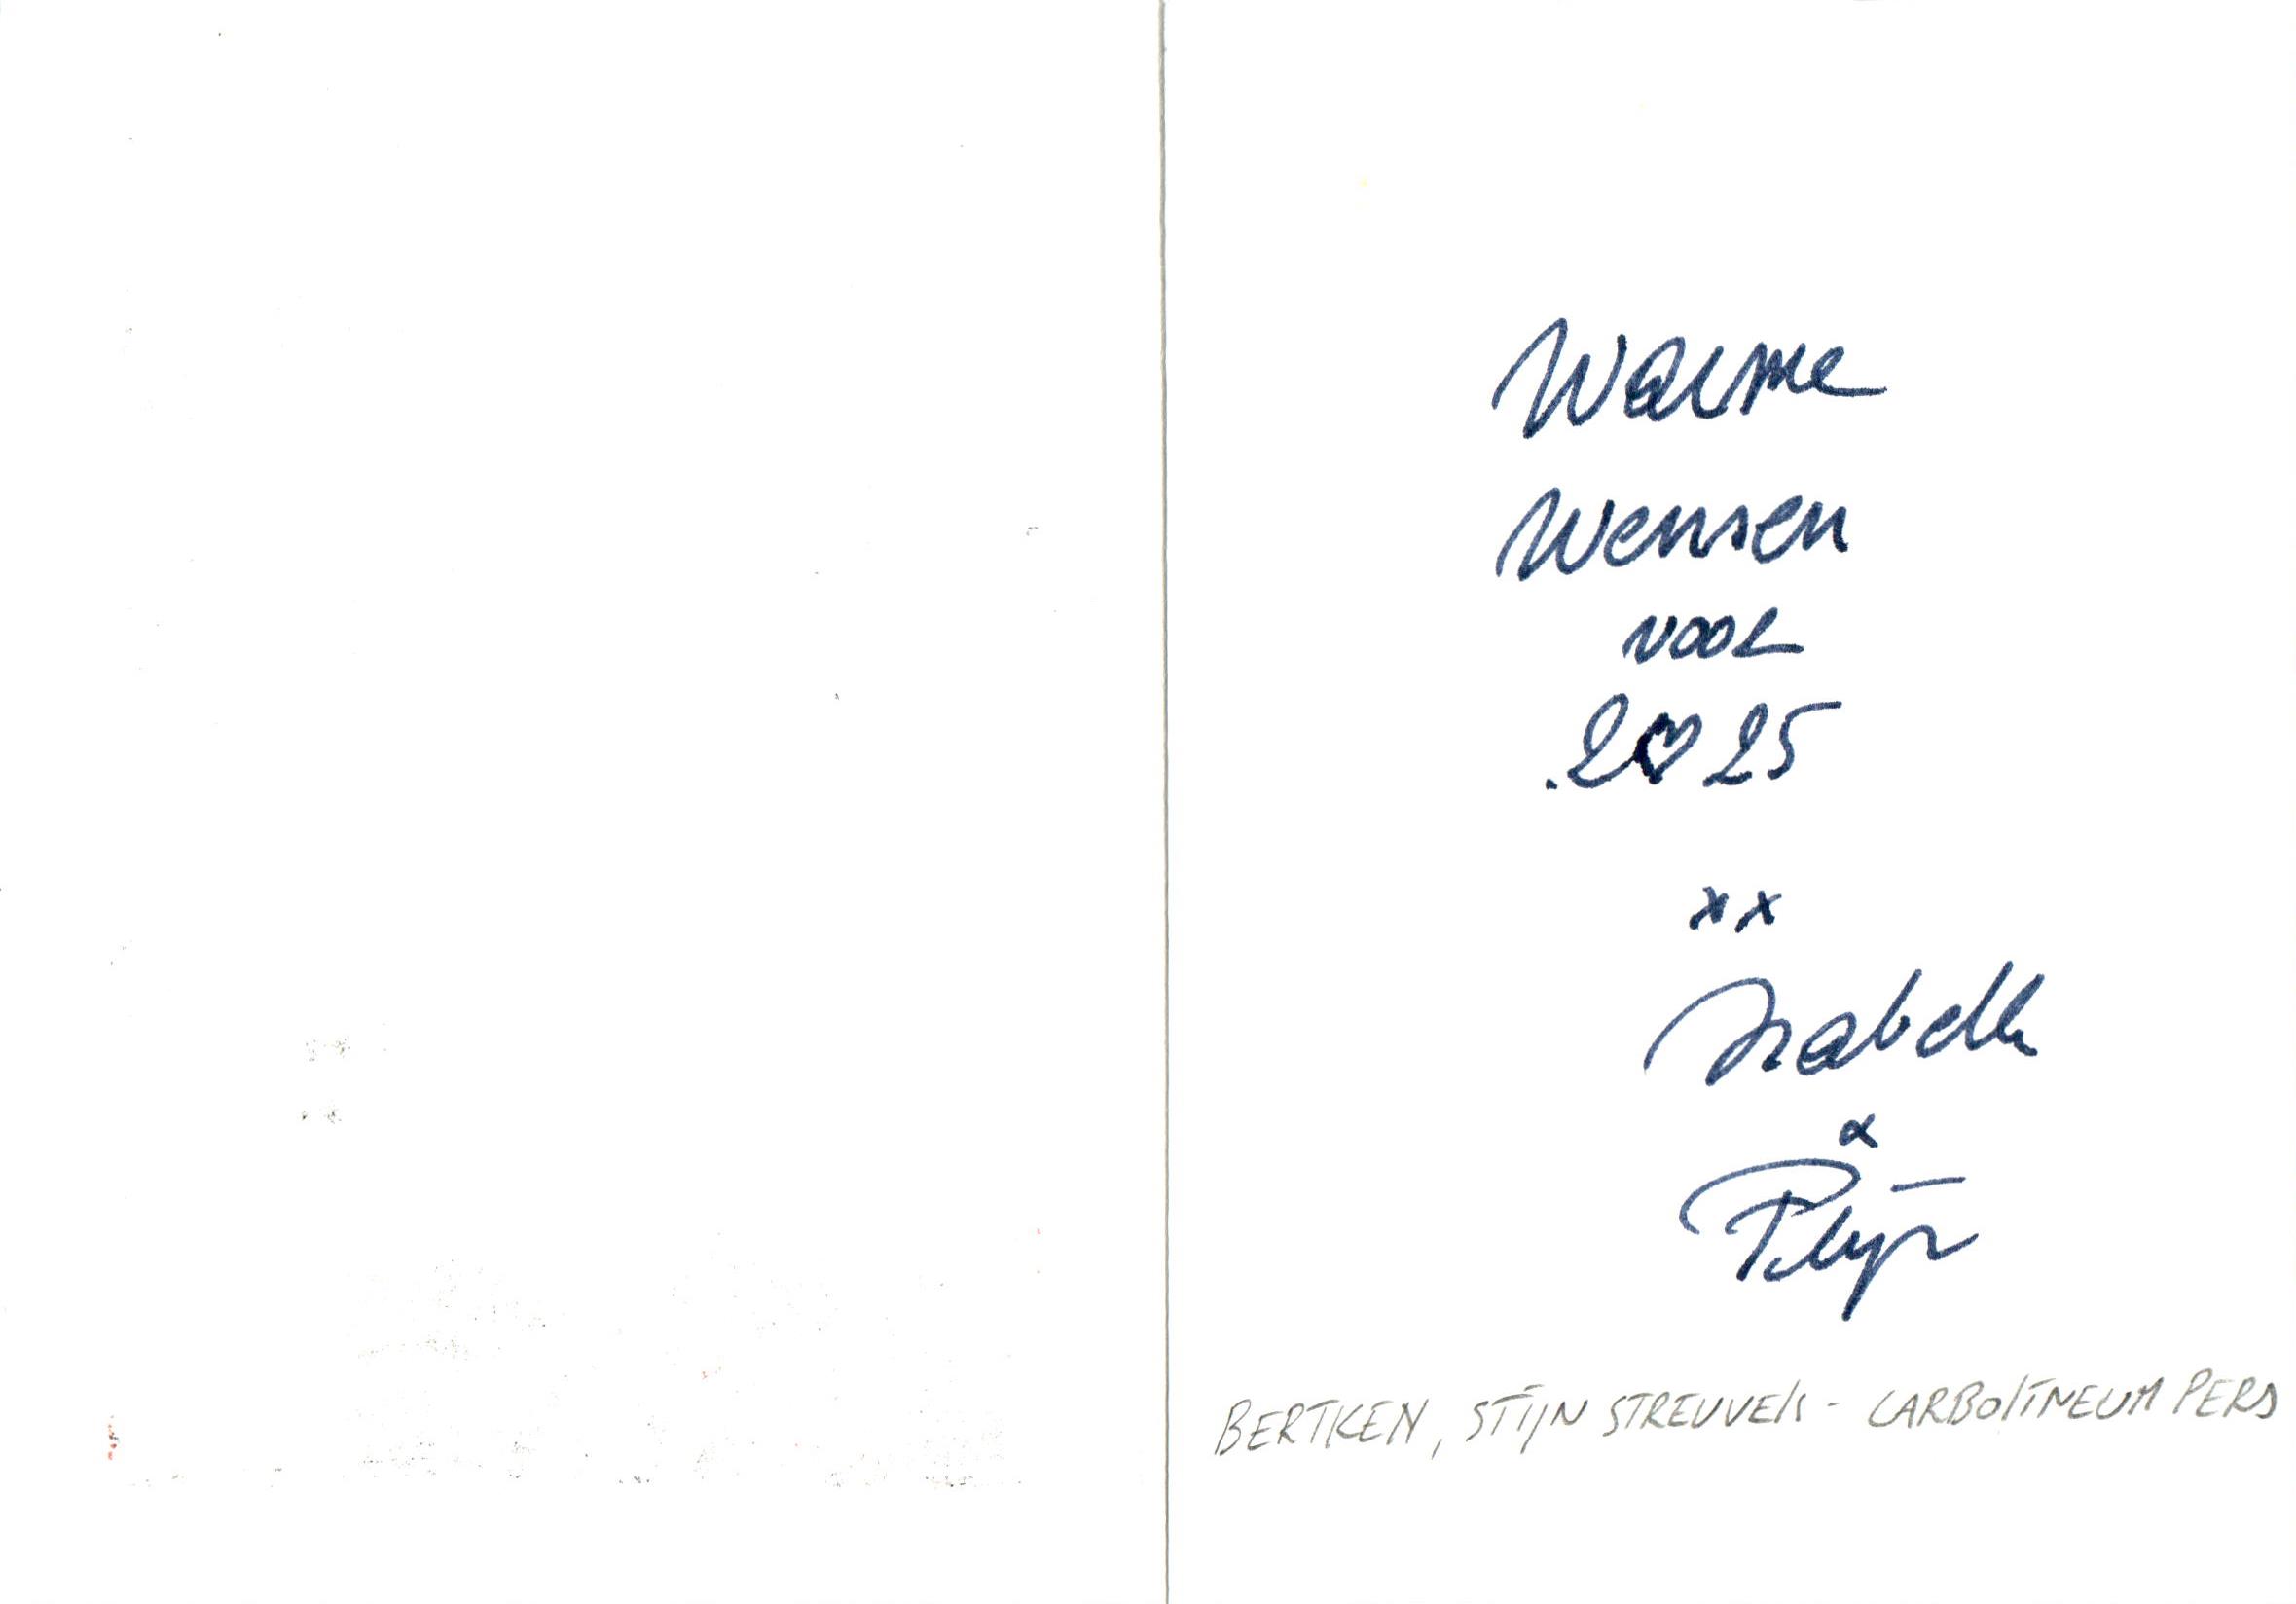 Warme
Wensen
voor
2♡25
xx
Isabelle
&
BERTKEN, STIJN STREUVELS - CARBOLINEUM PERS